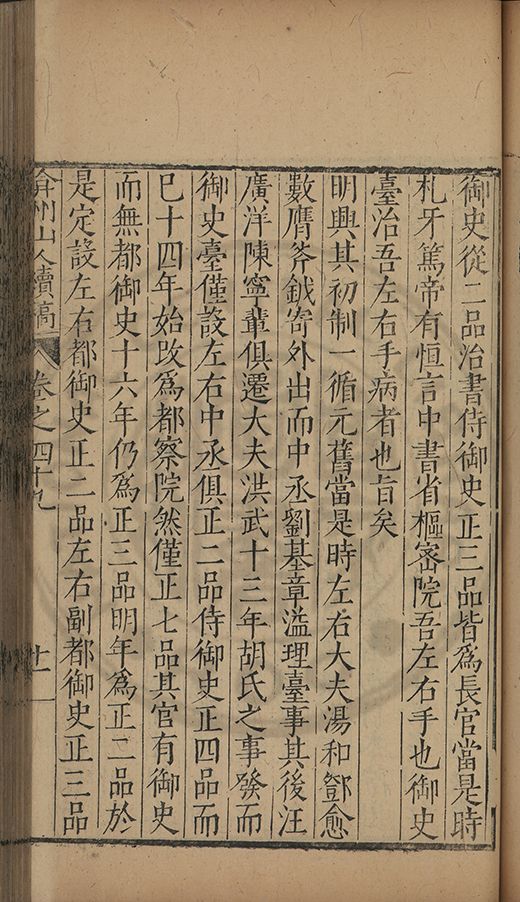 御史從二品治書侍御史正三品皆爲長官當是時
札牙篤帝有恒言中書省樞密院吾左右手也御史
臺治吾左右手病者也旨矣
明興其初制一循元舊當是時左右大夫湯和鄧愈
數膺斧鉞寄外出而中丞劉基章溢理臺事其後汪
廣洋陳寧輩俱遷大夫洪武十三年胡氏之事發而
御史臺僅設左右中丞俱正二品侍御史正四品而
已十四年始改爲都察院然僅正七品其官有御史
而無都御史十六年仍爲正三品明年爲正二品於
是定設左右都御史正二品左右副都御史正三品
弇州山人續稿 卷之四十九 廿一